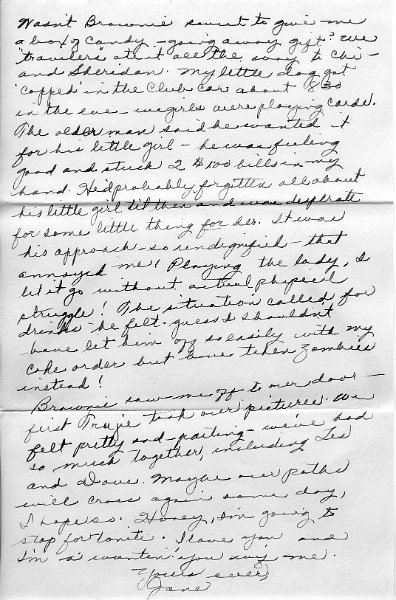 Wasn't Brownie sweet to give me
a box of candy - going away gift? We
"travelers" ate it all the way to Chi -
and Sheridan. My little dog got
"copped" in the Club Car about 8:30
in the eve - we girls were playing cards.
The older man said he wanted it
for his little girl - he was feeling
good and stuck 2 $1.00 bills in my
hand. He'd probably forgotten all about
his little girl til then and was desperate
for some little thing for her. It was
his approach - so undignified - that
annoyed me! Playing the lady, I
let it go without actual physical
struggle! The situation called for
drinks he felt - guess I shouldn't
have let him off so easily with my
coke order but have taken zombies
instead!
Brownie saw me off to our door -
first took our pictures. We
felt pretty sad - parting - we've had
so much together, including Les
and Dave. Maybe our paths
will cross again some day,
I hope so. Honey, I'm going to
stop for tonite. I love you and
I'm a wantin' you my me.
Yours ever,
Jane